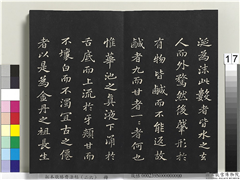 涎為沫此數者皆水之去
人而外騖然後肇形於
有物皆鹹而不能返故
鹹者九而甘者一一者何也
惟華池之真液下湧於
舌底而上流於牙頰甘而
不壞白而不濁宜古之僊
者以是為金丹之祖長生